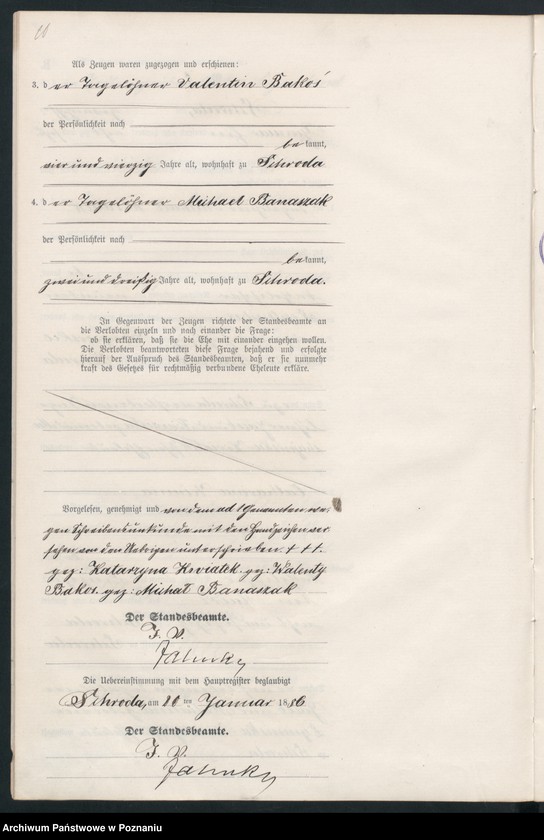 Als Zeugen waren zugezogen und erschienen:
3. der Tagelöhner Valentin Bakoś
der Persönlichkeit nach
bekannt,
vier und vierzig Jahre alt, wohnhaft zu Schroda
4. der Tagelöhner Michael Banaszak
der Persönlichkeit nach
bekannt,
zwei und dreißig Jahre alt, wohnhaft zu Schroda.
In Gegenwart der Zeugen richtete der Standesbeamte an
die Verlobten einzeln und nach einander die Frage:
ob sie erklären, daß sie die Ehe mit einander eingehen wollen.
Die Verlobten beantworteten diese Frage bejahend und erfolgte
hierauf der Ausspruch des Standesbeamten, daß er sie nunmehr
kraft des Gesetzes für rechtmäßig verbundene Eheleute erkläre.
Vorgelesen, genehmigt und von dem ad 1 Genannten we-
gen Schreibensunkunde mit den Handzeichen ver-
sehen von den Uebrigen unterschrieben. + + +.
gez: Katarzyna Kwiatek. gez: Walenty
Bakos. gez: Michał Banaszak
Der Standesbeamte.
I. V.
Die Uebereinstimmung mit dem Hauptregister beglaubigt
Schroda, am ten Januar 1886
Der Standesbeamte.
I. V.
Archiwum Państwowe w Poznaniu